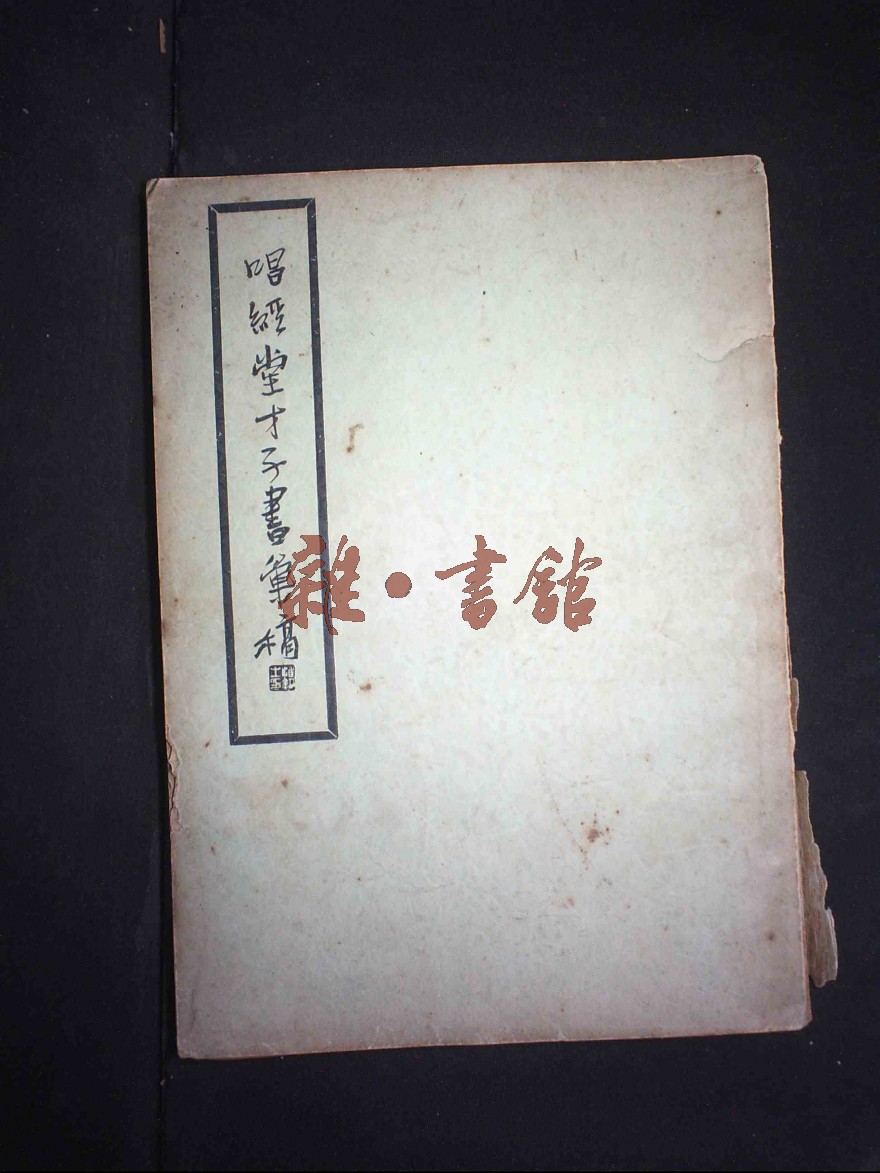 唱經堂才子書彙稿
雜·書館